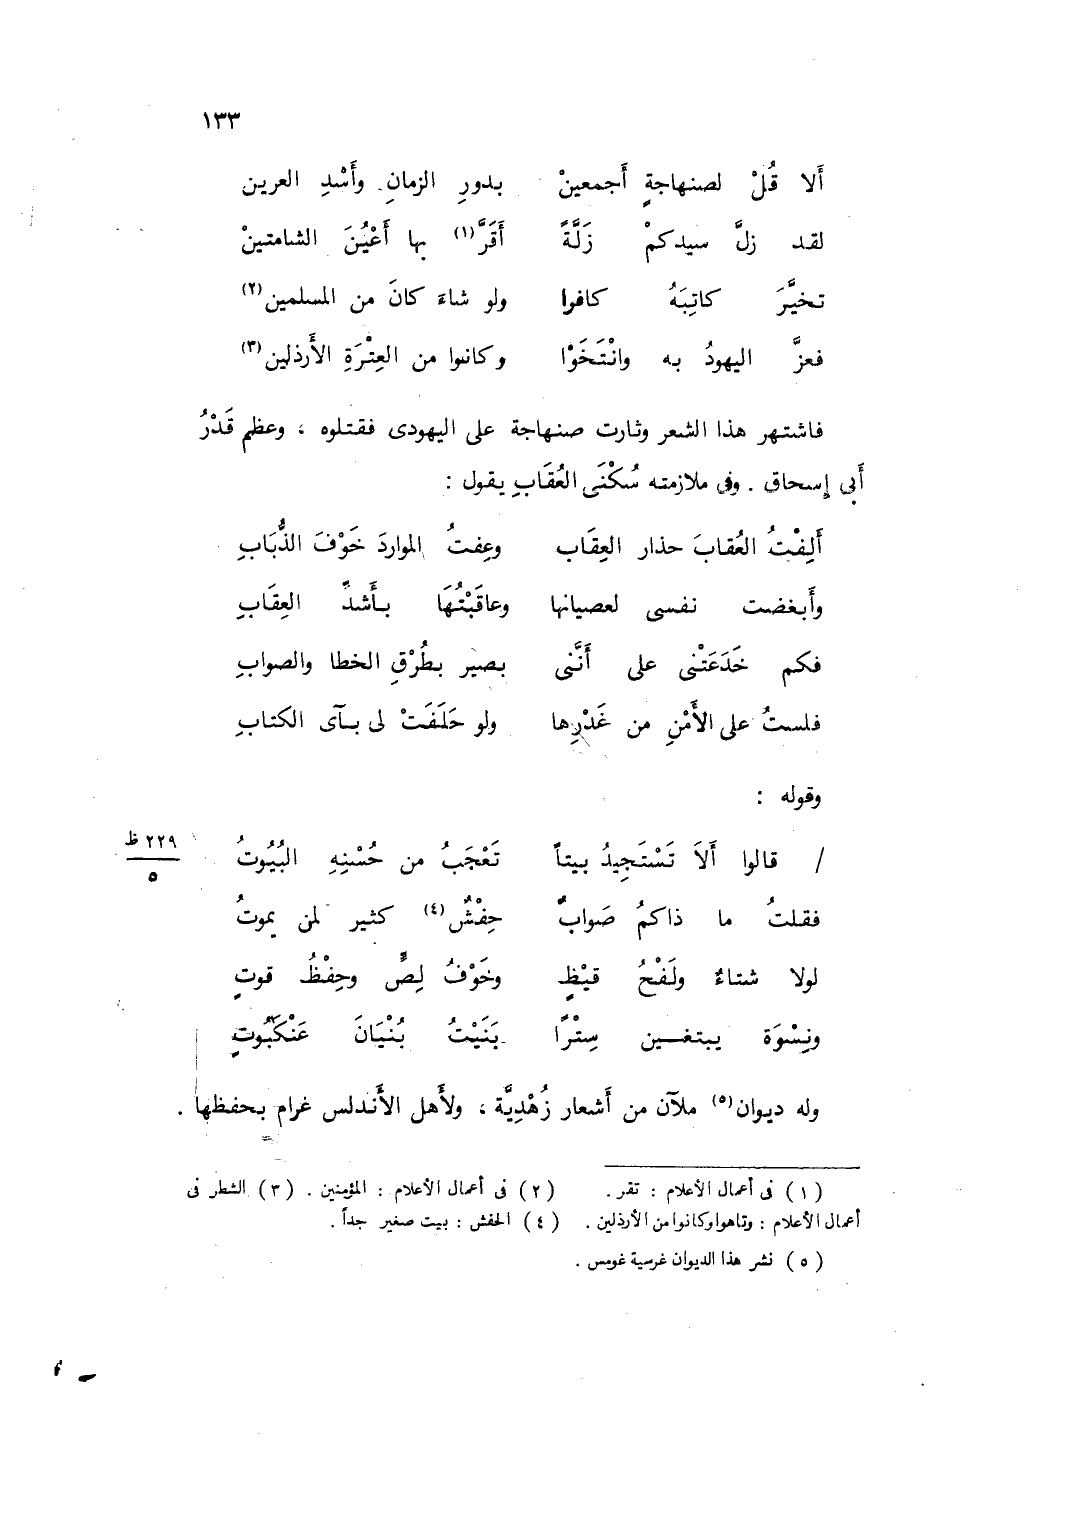 ١٣٣
ألا قُلْ لصنهاجةٍ أجمعينْ بدورِ الزمانِ وأُسْدِ العرين
لقد زلَّ سيدكمْ زَلَّةً أَقَرَّ(١) بها أَعْيُنَ الشامتينْ
تخيَّرَ كاتِبَهُ كافرا ولو شاءَ كانَ من المسلمين(٢)
فعزَّ اليهودُ به وانْتَخَوْا وكانوا من العِتْرَةِ الأَرذلين(٣)
فاشتهر هذا الشعر وثارت صنهاجة على اليهودى فقتلوه ، وعظم قَدْرُ
أَبى إسحاق . وفى ملازمته سُكْنَى العُقَابِ يقول :
أَلِفْتُ العُقابَ حذار العِقَاب وعِفتُ المواردَ خَوْفَ الذُّبَابِ
وأَبغضت نفسى لعصيانها وعاقَبْتُهَا بأَشدِّ العِقَابِ
فكم خَدَعَتْنى على أَنَّنى بصير بطُرْقِ الخطا والصوابِ
فلستُ على الأَمْنِ من غَدْرِها ولو حَلَفَتْ لى بآى الكتابِ
وقوله :
/ قالوا أَلاَ تَسْتَجِيدُ بيتاً تَعْجَبُ من حُسْنِهِ البُيُوتُ
٢٢٩ ظ
٥
فقلتُ ما ذاكمُ صَوابٌ حِفْشٌ(٤) كثير لمن يموتُ
لولا شتاءٌ ولَفْحُ قيْظٍ وخَوْفُ لِصٍّ وحِفْظُ قوتٍ
ونِسْوَة يبتغــين سِتْرًا بَنَيْتُ بُنْيَانَ عَنْكَبُوتٍ
وله ديوان(٥) ملآن من أَشعار زُهْدِيَّة ، ولأَهل الأَندلس غرام بحفظها .
(١) فى أعمال الأعلام : تقر . (٢) فى أعمال الأعلام : المؤمنين . (٣) الشطر فى
أعمال الأعلام : وتاهوا وكانوا من الأرذلين . (٤) الحفش : بيت صغير جداً .
(٥) نشر هذا الديوان غرسية غومس .